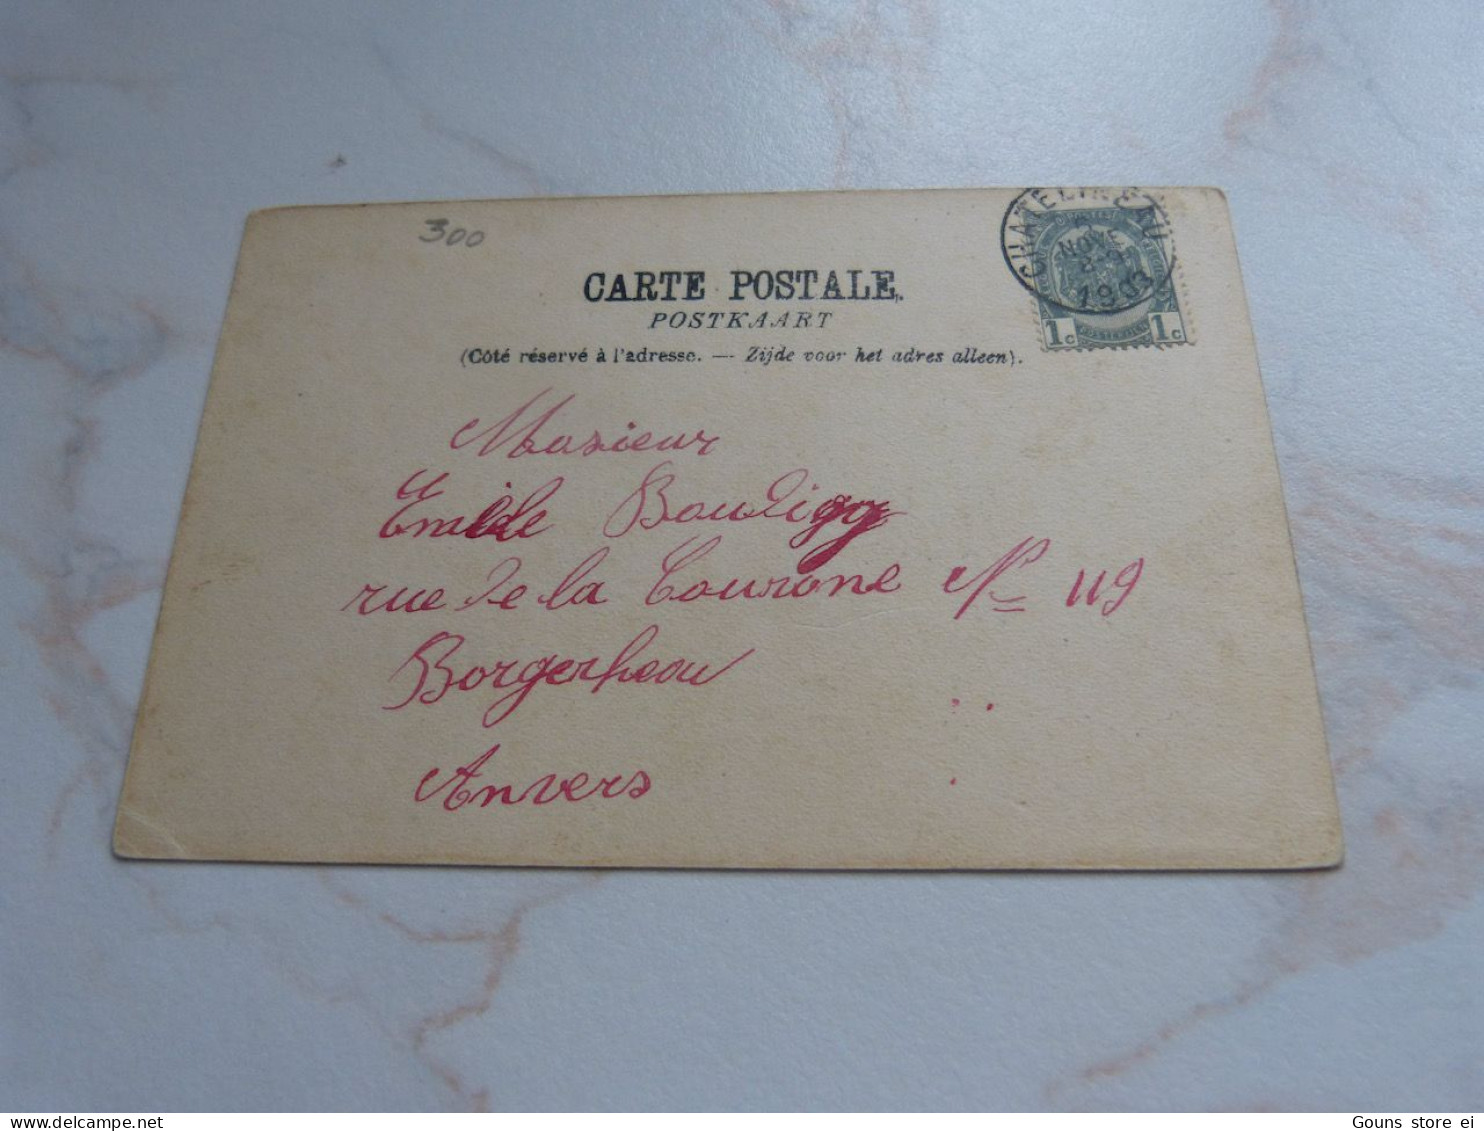 300
CHATELINEAU
6
NOVE
8-9
1903
1c 1c
CARTE POSTALE.
POSTKAART
(Côté réservé à l'adresse. — Zijde voor het adres alleen).
Monsieur
Emile
rue de la Couronne Nº 119
Borgerhout
Anvers
Gouns store ei